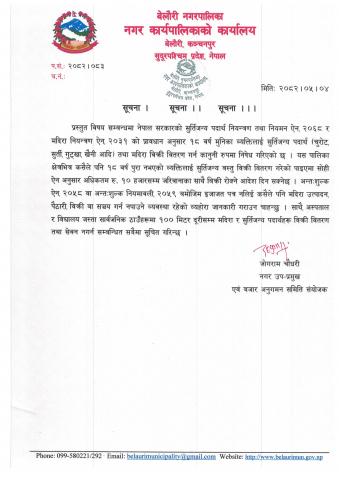 बेलौरी नगरपालिका
नगर कार्यपालिकाको कार्यालय
बेलौरी, कञ्चनपुर
सुदूरपश्चिम प्रदेश, नेपाल
प.सं.: २०८२।०८३
च.नं.:
मिति: २०८२।०५।०४
सूचना । सूचना ।। सूचना ।।।
प्रस्तुत विषय सम्बन्धमा नेपाल सरकारको सुर्तिजन्य पदार्थ नियन्त्रण तथा नियमन ऐन २०६८ र
मदिरा नियन्त्रण ऐन् २०३१ को प्रावधान अनुसार १८ वर्ष मुनिका व्यक्तिलाई सुर्तिजन्य पदार्थ (चुरोट,
सुर्ती, गुट्खा, खैनी आदि) तथा मदिरा बिक्री वितरण गर्न कानुनी रुपमा निषेध गरिएको छ । यस पालिका
क्षेत्रभित्र कसैले पनि १८ वर्ष पुरा नभएको व्यक्तिलाई सुर्तिजन्य वस्तु बिक्री वितरण गरेको पाइएमा सोही
ऐन अनुसार अधिकतम रु. १० हजारसम्म जरिवानाका साथै बिक्री रोक्ने आदेश दिन सक्नेछ । अन्त:शुल्क
ऐन २०५८ वा अन्त:शुल्क नियमावली २०५९ बमोजिम इजाजत पत्र नलिई कसैले पनि मदिरा उत्पादन,
पैठारी, बिक्री वा सञ्चय गर्न नपाउने व्यवस्था रहेको व्यहोरा जानकारी गराउन चाहन्छु । साथै, अस्पताल
र विद्यालय जस्ता सार्वजनिक ठाउँहरूमा १०० मिटर दूरीसम्म मदिरा र सुर्तिजन्य पदार्थहरू बिक्री वितरण
तथा सेवन नगर्न सम्बन्धित सबैमा सूचित गरिन्छ ।
जोगराम चौधरी
नगर उप-प्रमुख
एवं बजार अनुगमन समिति संयोजक
Phone: 099-580221/292 Email: belaurimunicipality@gmail.com Website: http://www.belaurimun.gov.np